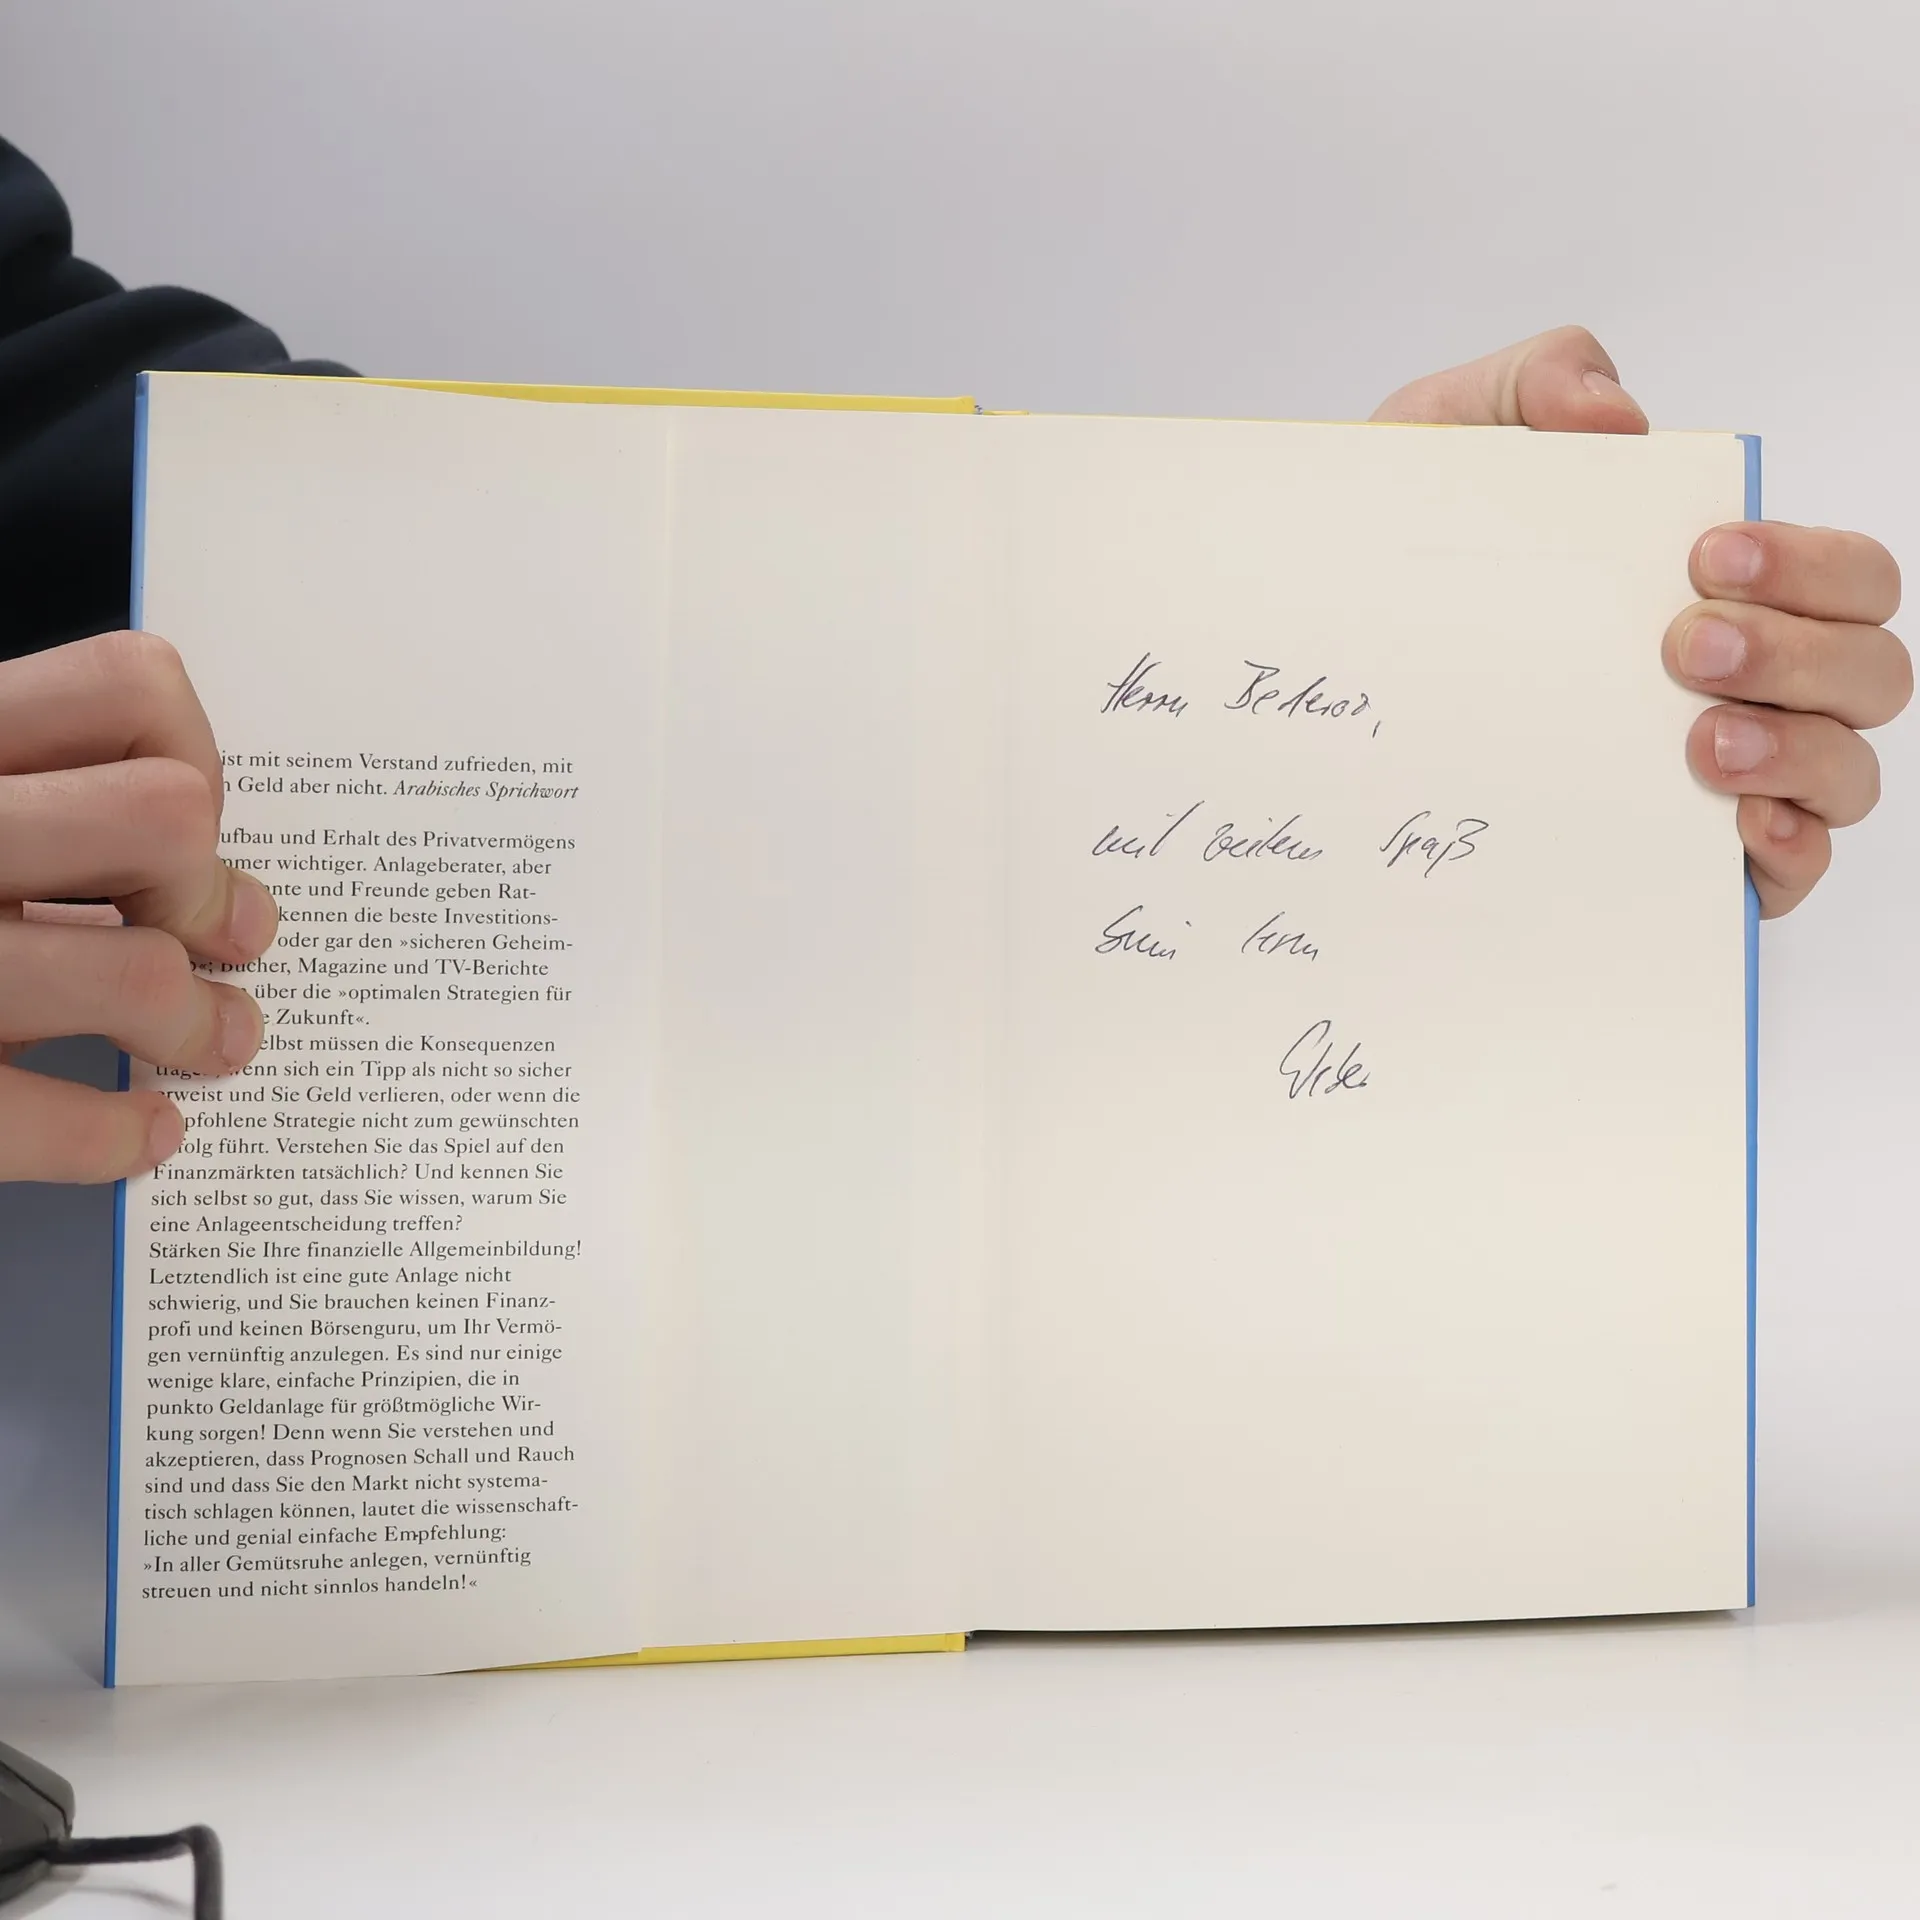 ist mit seinem Verstand zufrieden, mit
Geld aber nicht. Arabisches Sprichwort
ufbau und Erhalt des Privatvermögens
mmer wichtiger. Anlageberater, aber
nte und Freunde geben Rat-
kennen die beste Investitions-
oder gar den »sicheren Geheim-
«; Bücher, Magazine und TV-Berichte
über die »optimalen Strategien für
e Zukunft«.
elbst müssen die Konsequenzen
wenn sich ein Tipp als nicht so sicher
erweist und Sie Geld verlieren, oder wenn die
pfohlene Strategie nicht zum gewünschten
folg führt. Verstehen Sie das Spiel auf den
Finanzmärkten tatsächlich? Und kennen Sie
sich selbst so gut, dass Sie wissen, warum Sie
eine Anlageentscheidung treffen?
Stärken Sie Ihre finanzielle Allgemeinbildung!
Letztendlich ist eine gute Anlage nicht
schwierig, und Sie brauchen keinen Finanz-
profi und keinen Börsenguru, um Ihr Vermö-
gen vernünftig anzulegen. Es sind nur einige
wenige klare, einfache Prinzipien, die in
punkto Geldanlage für größtmögliche Wir-
kung sorgen! Denn wenn Sie verstehen und
akzeptieren, dass Prognosen Schall und Rauch
sind und dass Sie den Markt nicht systema-
tisch schlagen können, lautet die wissenschaft-
liche und genial einfache Empfehlung:
»In aller Gemütsruhe anlegen, vernünftig
streuen und nicht sinnlos handeln!«
Herrn
mit Spaß